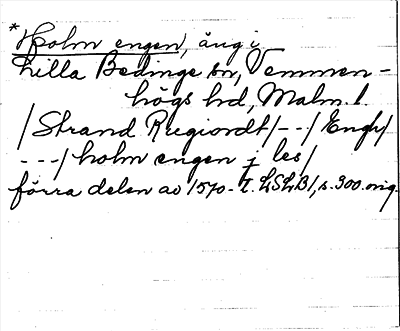 *Holm engen, äng i
Lilla Bedinge sn, Vemmen-
högs hd, Malm. l.
/Strand Rregiordt/--/Engh/
---/holm engen j les/
förra delen av 1570-t. LSLB1, s. 300. orig.